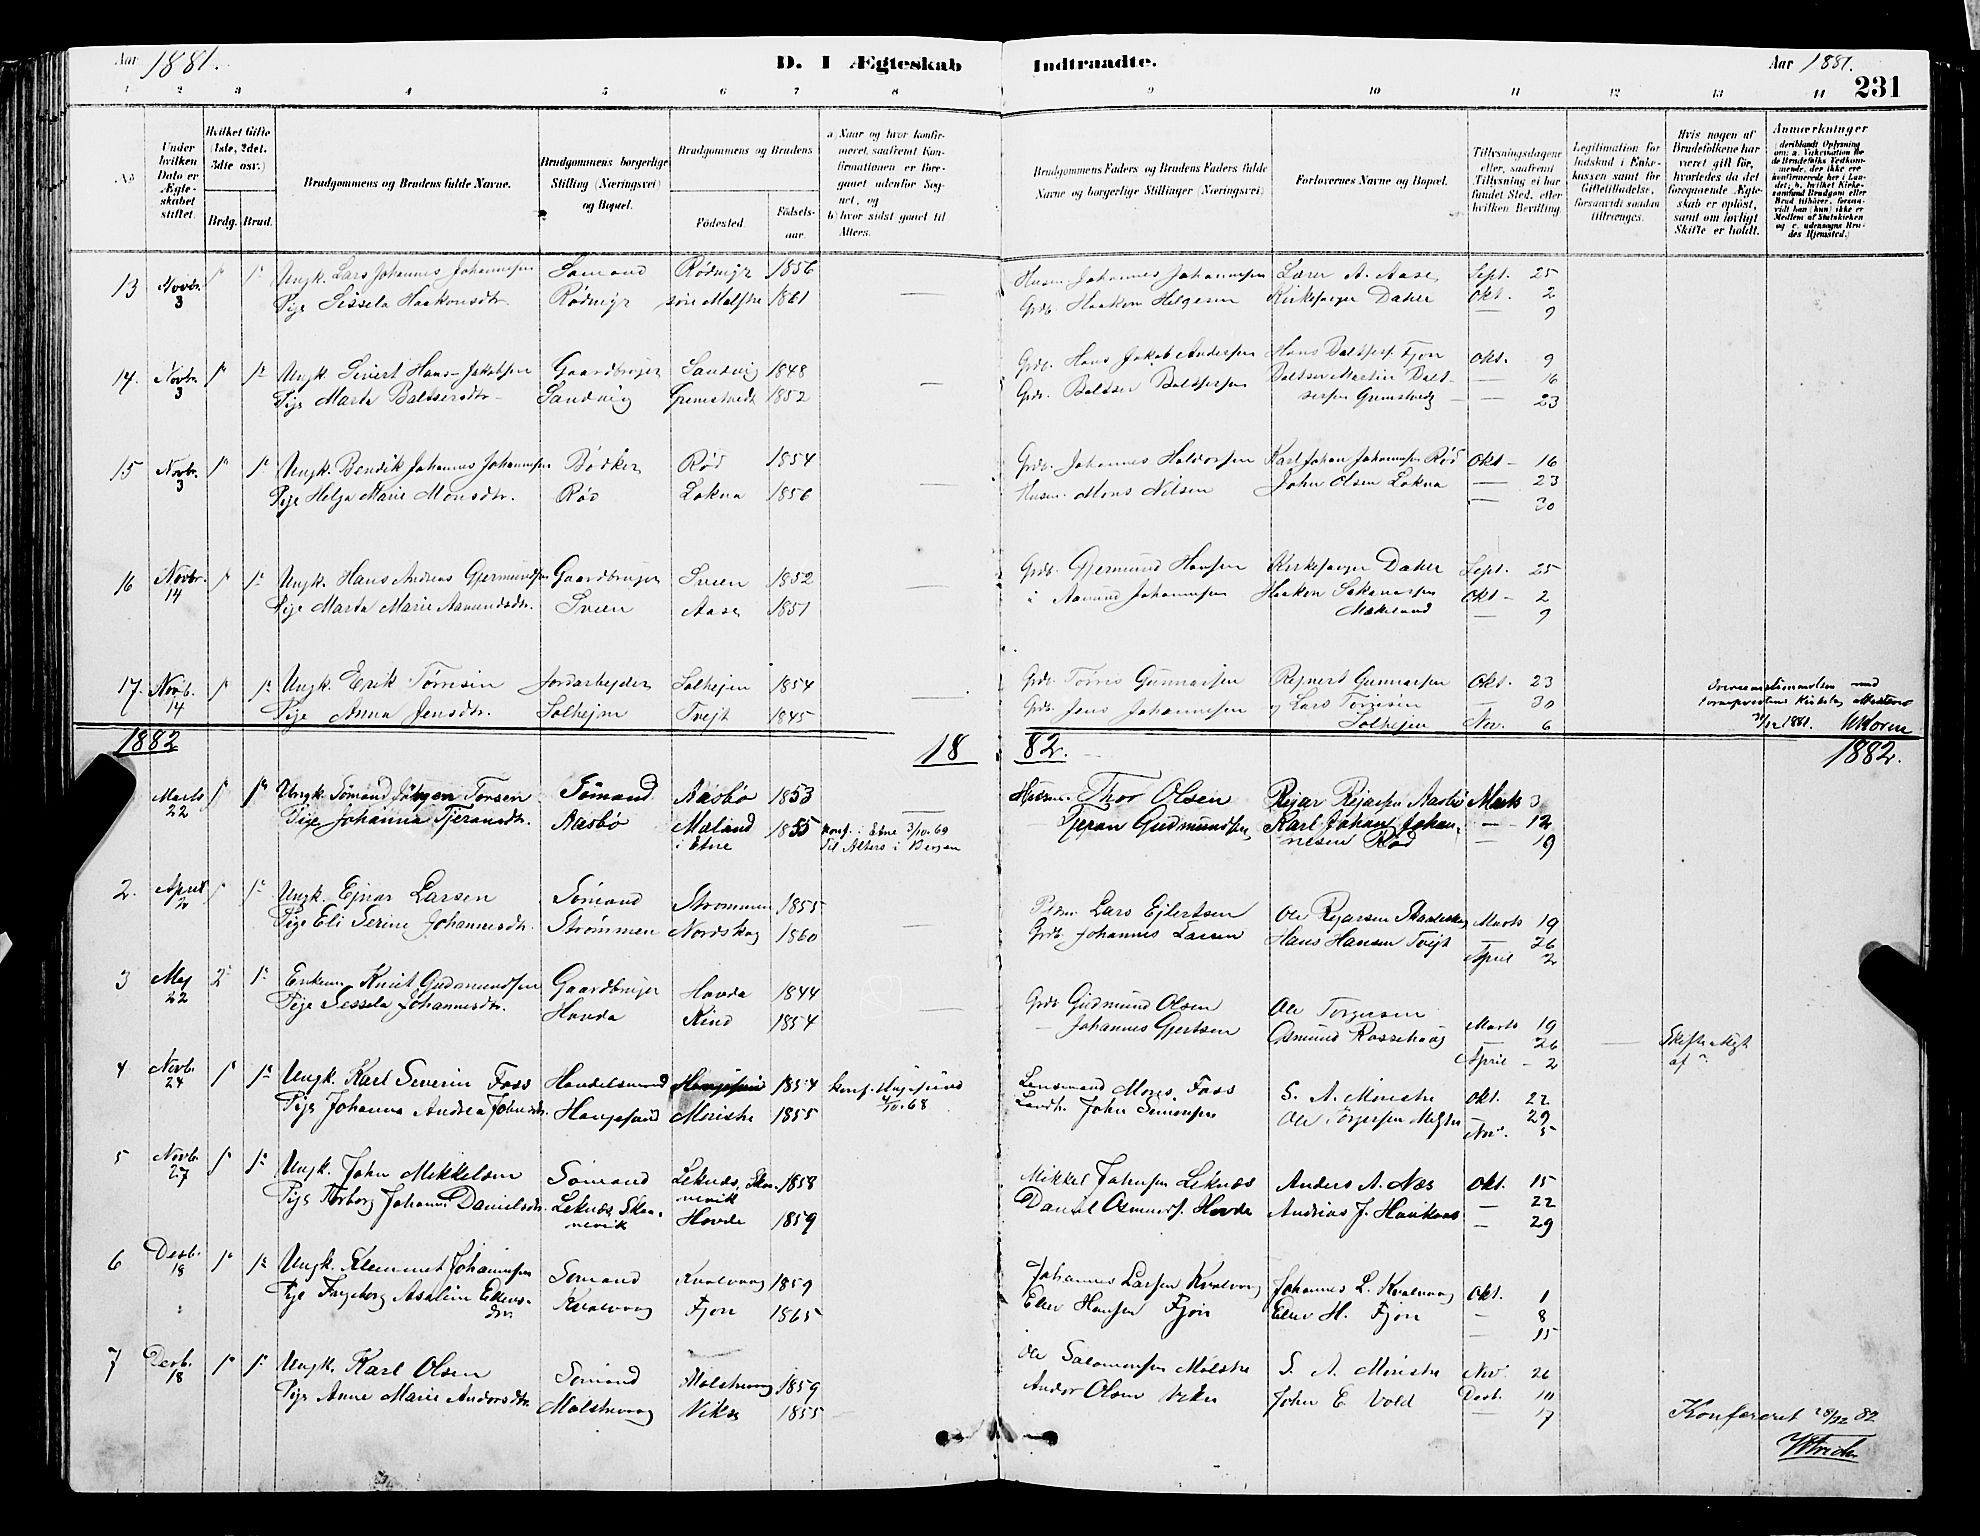 Aar 1881. D. I Ægteskab Indtraadte. Aar 1881. 231
1 2 3 4 5 6 7 8 9 10 11 12 13 14
No.
Under hvilken Dato er Ægteskabet stiftet.
Hvilket Gifte (1ste, 2det, 3die osv.)
Brdg. Brud.
Brudgommens og Brudens fulde Navne.
Brudgommens borgerlige Stilling (Næringsvei) og Bopæl.
Brudgommens og Brudens
Fødested. Fødselsaar.
a) Naar og hvor konfirmeret, saafremt Konfirmationen er foregaaet udenfor Sognet, og
b) hvor sidst gaaet til Alters.
Brudgommens Faders og Brudens Faders fulde Navne og borgerlige Stillinger (Næringsvei)
Forlovernes Navne og Bopæl.
Tillysningsdagene eller, saafremt Tillysning ei har fundet Sted, efter hvilken Bevilling
Legitimation for Indskud i Enkekassen samt for Giftetilladelse, forsaavidt saadan tiltrænges.
Hvis nogen af Brudefolkene har været gift før, hvorledes da det foregaaende Ægteskab er opløst, samt om lovligt Skifte er holdt.
Anmærkninger
13 Novbr. 3 1° 1° Ungk. Lars Johannes Johannesen Sømand Rødmyr 1856 Husm. Johannes Johannesen Lærer A. Aase, Sept. 25
Pige Sissela Haakonsdtr. Rødmyr 1861 Grdb. Haakon Helgesen Kirkesanger Daher Okt. 2
— 9
14. Novbr. 3 1° 1° Ungk. Sivert Hans-Jakobsen Gaardbruger Sandvig 1848 — Grdb. Hans Jakob Andersen Hans Baltsers. Fjon Okt. 9
Pige Marta Baltsersdtr. Sandvig Gremstvedt 1852 Grdb. Baltser Baltsersen Baltser Martin Balt- — 16
sersen Gremstvedt — 23
15 Novbr. 3 1° 1° Ungk. Bendik Johannes Johannesen Bødker Rød 1854 Grdb. Johannes Haldorsen Karl Johan Johannesen Rød Okt - 16
Pige Helga Marie Monsdtr. Rød Lokna 1856 Husm. Mons Nilsen John Olsen Lokna — 23
— 30
16 Novbr. 14 1° 1° Ungk. Hans Andreas Gjermundsen Gaardbruger Sveen 1852 — Grdb. Gjermund Hansen Kirkesanger Daher Sept. 25
Pige Marta Marie Aamundsdtr. Sveen Aase 1851 Aamund Johannesen Haaken Okt - 2
— 9
17. Novb. 14 1° 1° Ungk. Erik Tørrisen Jordarbejder Solhejm 1854 — Grdb. Tørris Gunnarsen Rejnert Gunnarsen Okt. 23
Pige Anna Jensdtr. Solhejm Tvejt 1845 Grdb. Jens Johannesen og Lars Tørrisen — 30
Solhejm Nov. 6
Overensstemmelsen med
1881. WKoren
1882 18 82. 1882.
Marts 22 1° 1° Ungk. Sømand Jørgen Torsen Sømand Aasbø 1853 Husm. Thor Olsen Rejar Rejarsen Aasbø Marts 3
Pige Johanna Tjeransdtr. Aasbø Maland 1855 konf. i Etne 3/10.69 Tjeran Gudmundsen Karl Johan Johan- — 12
i Etne til Alters i Bergen nesen Rød — 19
2. April 2 1° 1° Ungk. Ejnar Larsen Sømand Strømmen 1855 Lars Ejlertsen Ole Rejarsen Marts 19
Pige Eli Serine Johannesdtr. Strømmen Nordskog 1860 — Grdb. Johannes Larsen Hans Hansen Tvejt — 26
April 2
3 Maj 22 2° 1° Enkem. Knut Gudmundsen Gaardbruger Hovda 1844 Grdb. Gudmund Olsen Ole Torgersen Marts 19
Pige Sessela Johannesdtr. Hovda Rind 1854 — — Johannes Gjertsen Osmund Rossehaug — 26
April - 2
4 Novb. 24 1° 1° Ungk. Karl Severin Foss Handelsmand Haugesund 1854 konf. Haugesund Lensmand Mons Foss S. A. Mæreste Okt. 22
Pige Johanna Andrea Johnsdtr. Haugesund 1855 4/10.68 Landh. John Simonsen Ole Torgersen — 29
Nov. 5
5 Novb. 27 1° 1° Ungk. John Mikkelsen Sømand Leknæs, Skaa- 1858 Mikkel Johnsen Leknæs Anders A. Næs Okt. 15
Pige Torborg Johanne Danielsdtr. Leknæs Skaa- nevik Daniel Osmunds. Hovde Andrias J. Haukaas — 22
nevik Hovde 1859 — 29
6 Desb. 18 1° 1° Ungk. Klemmet Johannesen Sømand Kvalvaag 1859 Johannes Larsen Kvalvaag Johannes L. Kvalvaag Okt. 1
Pige Ingeborg Asaline Ellens- Kvalvaag Fjon 1865 Ellen Hansen Fjon Ellen H. Fjon — 8
dtr. — 15
7 Desb. 18 1° 1° Ungk. Karl Olsen Sømand Molstrevaag 1859 Ole Salomonsen Molstre S. A. Mæreste Nov. 26
Pige Anne Marie Andersdtr. Molstrevaag Vikse 1855 Anders Olsen Vikse John E. Vold Desb. 10
— 17
Konfereret 28/12 82